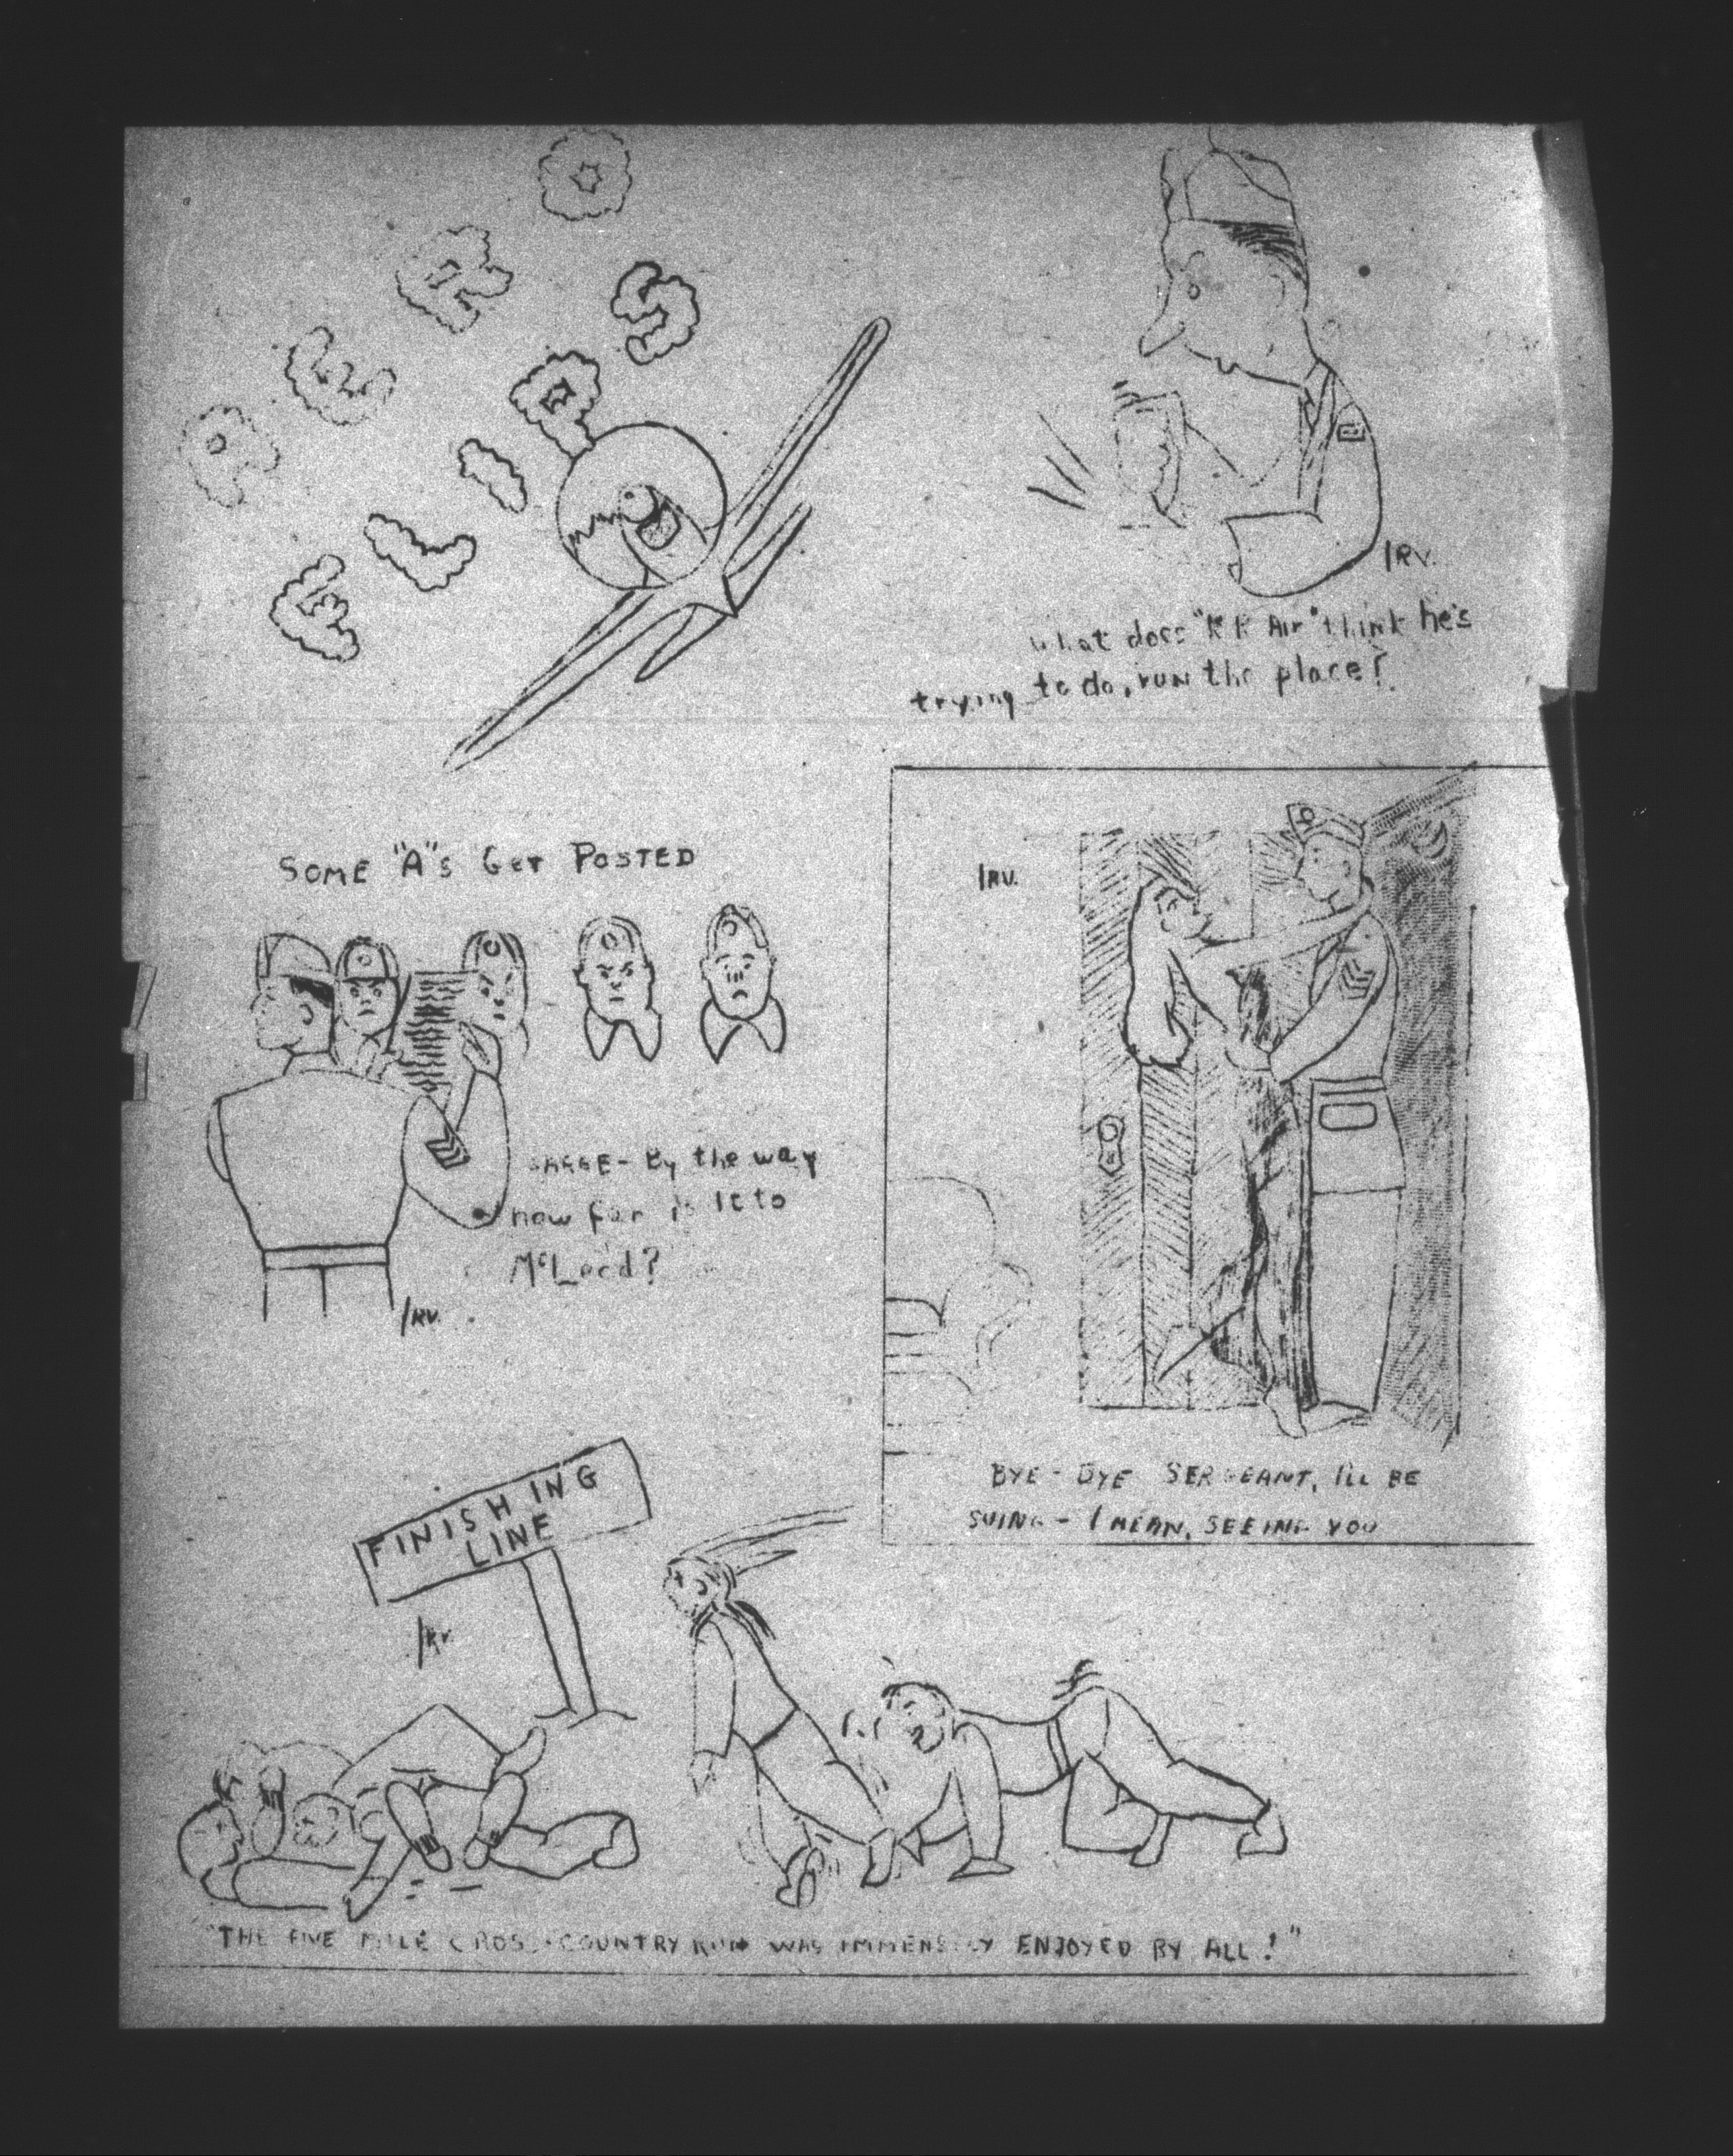 AERO
FLIPS
IRV.
What does " Air" think he's
trying to do, run the place?
SOME "A"s GET POSTED
SARGE - By the way
how far is it to
McLeod?
IRV.
IRV.
BYE - BYE SERGEANT, I'LL BE
SUING - I MEAN, SEEING YOU
FINISHING
LINE
IRV.
"THE FIVE MILE CROSS-COUNTRY RUN WAS IMMENSELY ENJOYED BY ALL!"